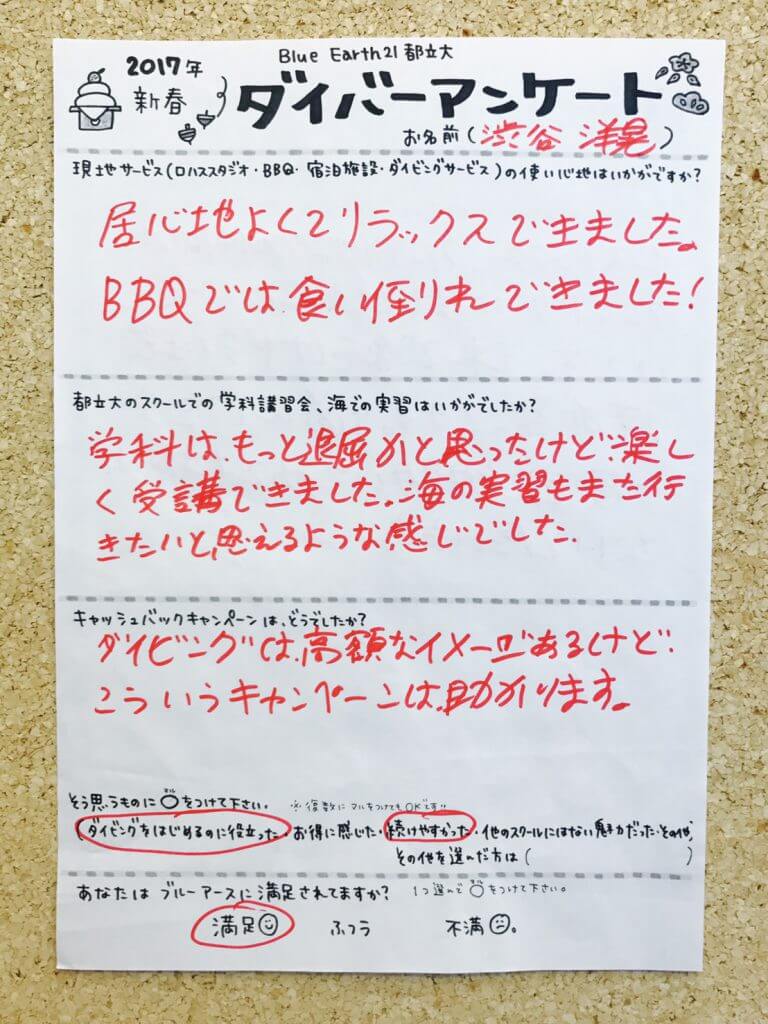 Blue Earth21 都立大
2017年
新春
ダイバーアンケート
お名前(渋谷 洋晃)
現地サービス(ロハススタジオ・BBQ・宿泊施設・ダイビングサービス)の使い心地はいかがですか?
居心地よくてリラックスできました。
BBQでは食い倒れできました!
都立大のスクールでの学科講習会、海での実習はいかがでしたか?
学科は、もっと退屈かと思ったけど、楽し
く受講できました。海の実習もまた行
きたいと思えるような感じでした.
キャッシュバックキャンペーンは、どうでしたか?
ダイビングは、高額なイメージあるけど、
こういうキャンペーンは、助かります。
そう思うものに○マルをつけて下さい。 ※複数にマルをつけてもOKです!!
(ダイビングをはじめるのに役立った・お得に感じた・続けやすかった・他のスクールにはない魅力だった・その他)
その他を選んだ方は( )
あなたは ブルーアースに満足されてますか? 1つ選んで○をつけて下さい。
満足 ふつう 不満。